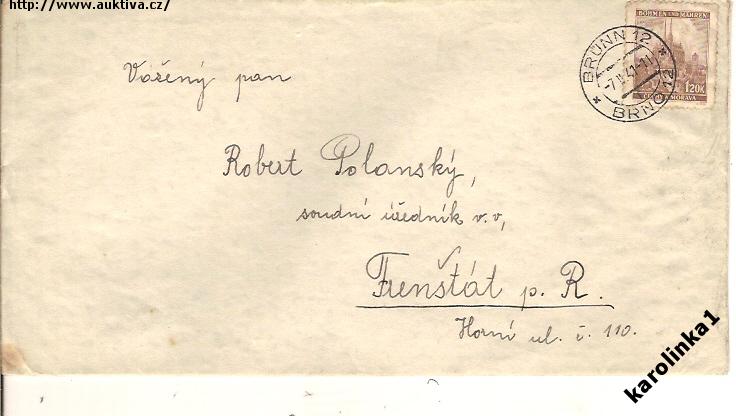 http://www.auktiva.cz/
BÖHMEN UND MÄHREN
1.20K
BRÜNN 12
BRNO 12
Vážený pan
Robert Polanský,
soudní úředník v.v,
Frenštát p. R.
Horní ul. č. 110.
karolinka1